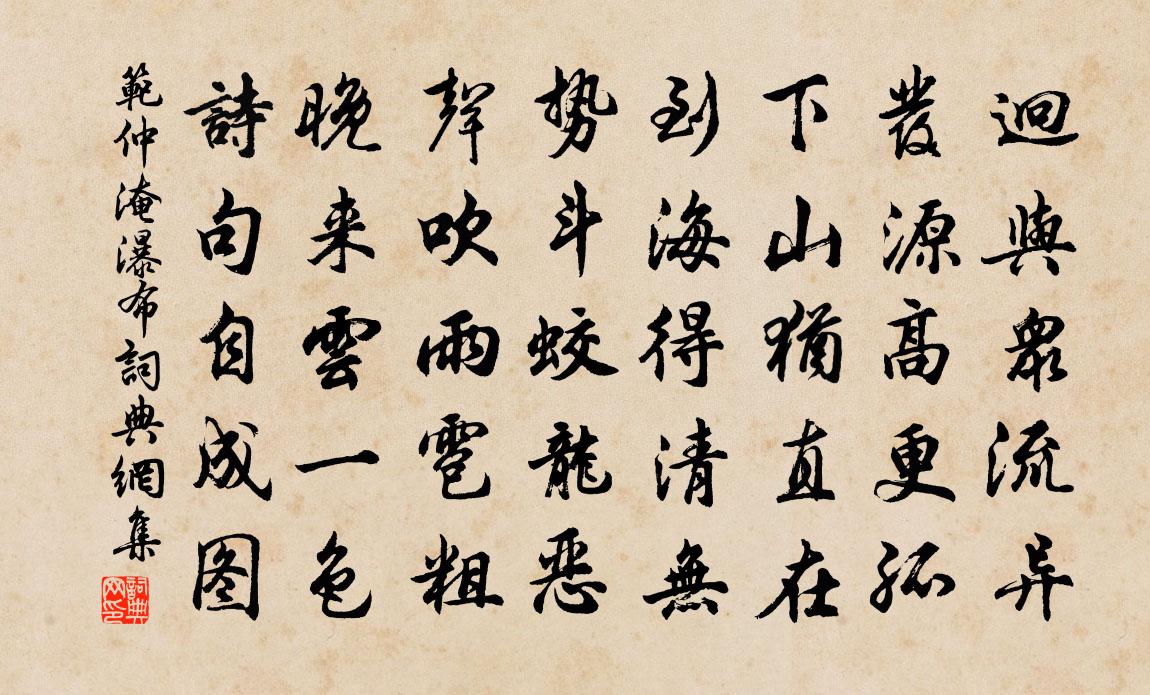 迥與衆流异
發源高更孤
下山猶直在
到海得清無
势斗蛟龍惡
聲吹雨雹粗
晚来雲一色
詩句自成图
範仲淹瀑布詞典網集
詞典网印